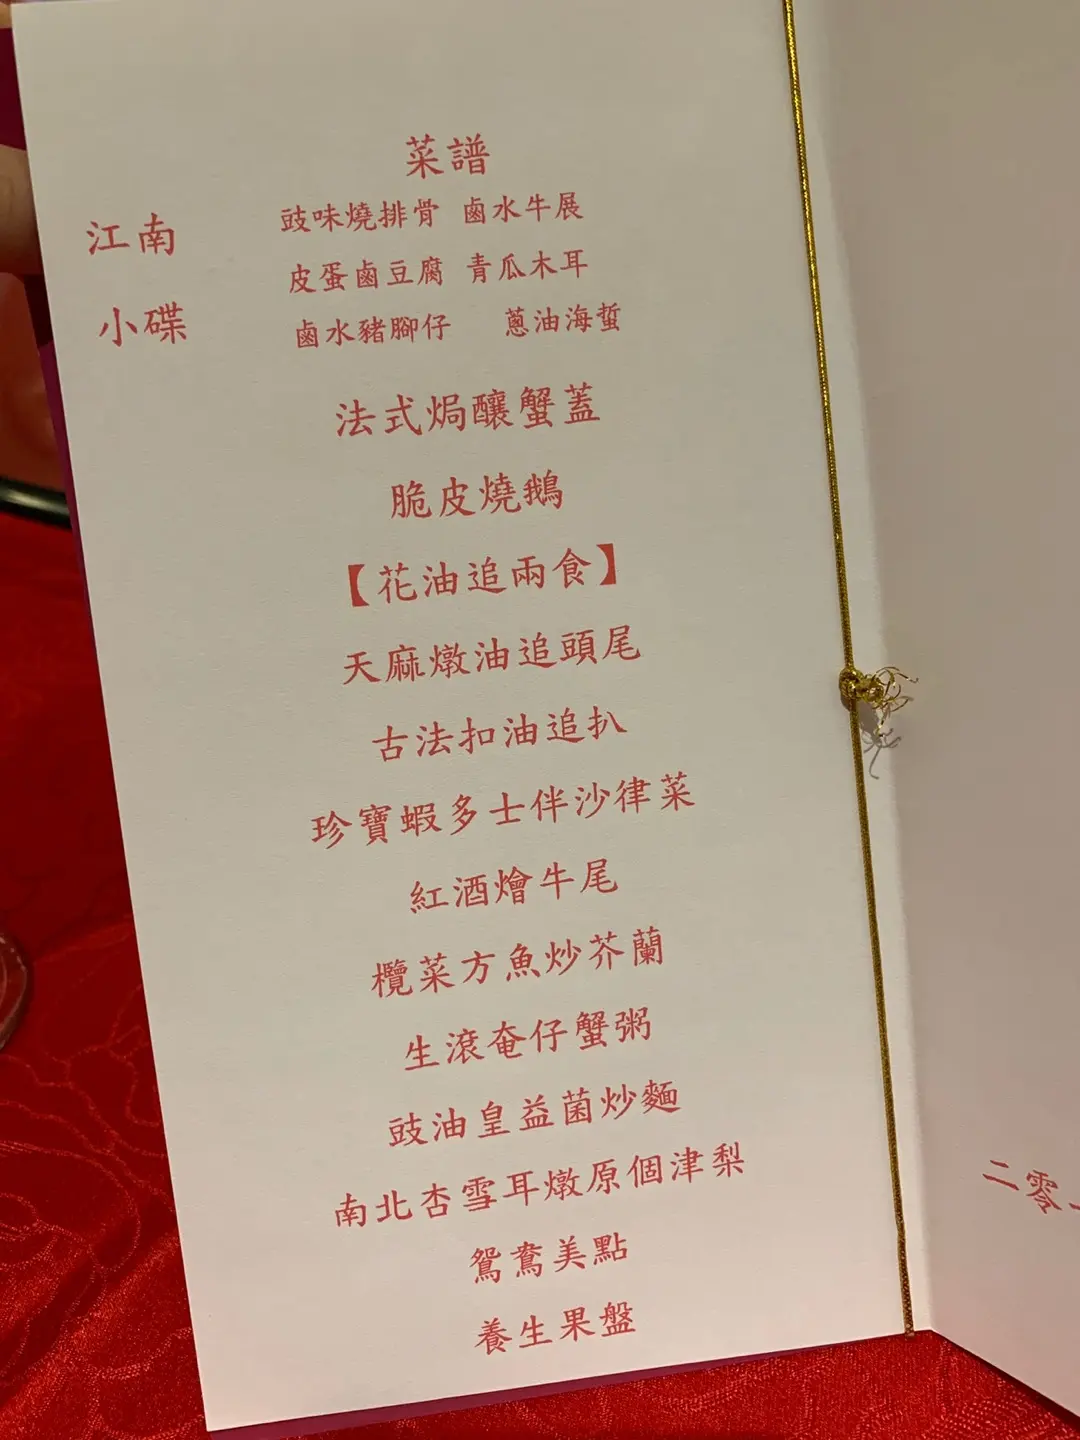 菜譜
江南
豉味燒排骨 鹵水牛展
皮蛋鹵豆腐 青瓜木耳
小碟
鹵水豬腳仔 蔥油海蜇
法式焗釀蟹蓋
脆皮燒鵝
【花油追兩食】
天麻燉油追頭尾
古法扣油追扒
珍寶蝦多士伴沙律菜
紅酒燴牛尾
欖菜方魚炒芥蘭
生滾奄仔蟹粥
豉油皇益菌炒麵
南北杏雪耳燉原個津梨
鴛鴦美點
養生果盤
二零